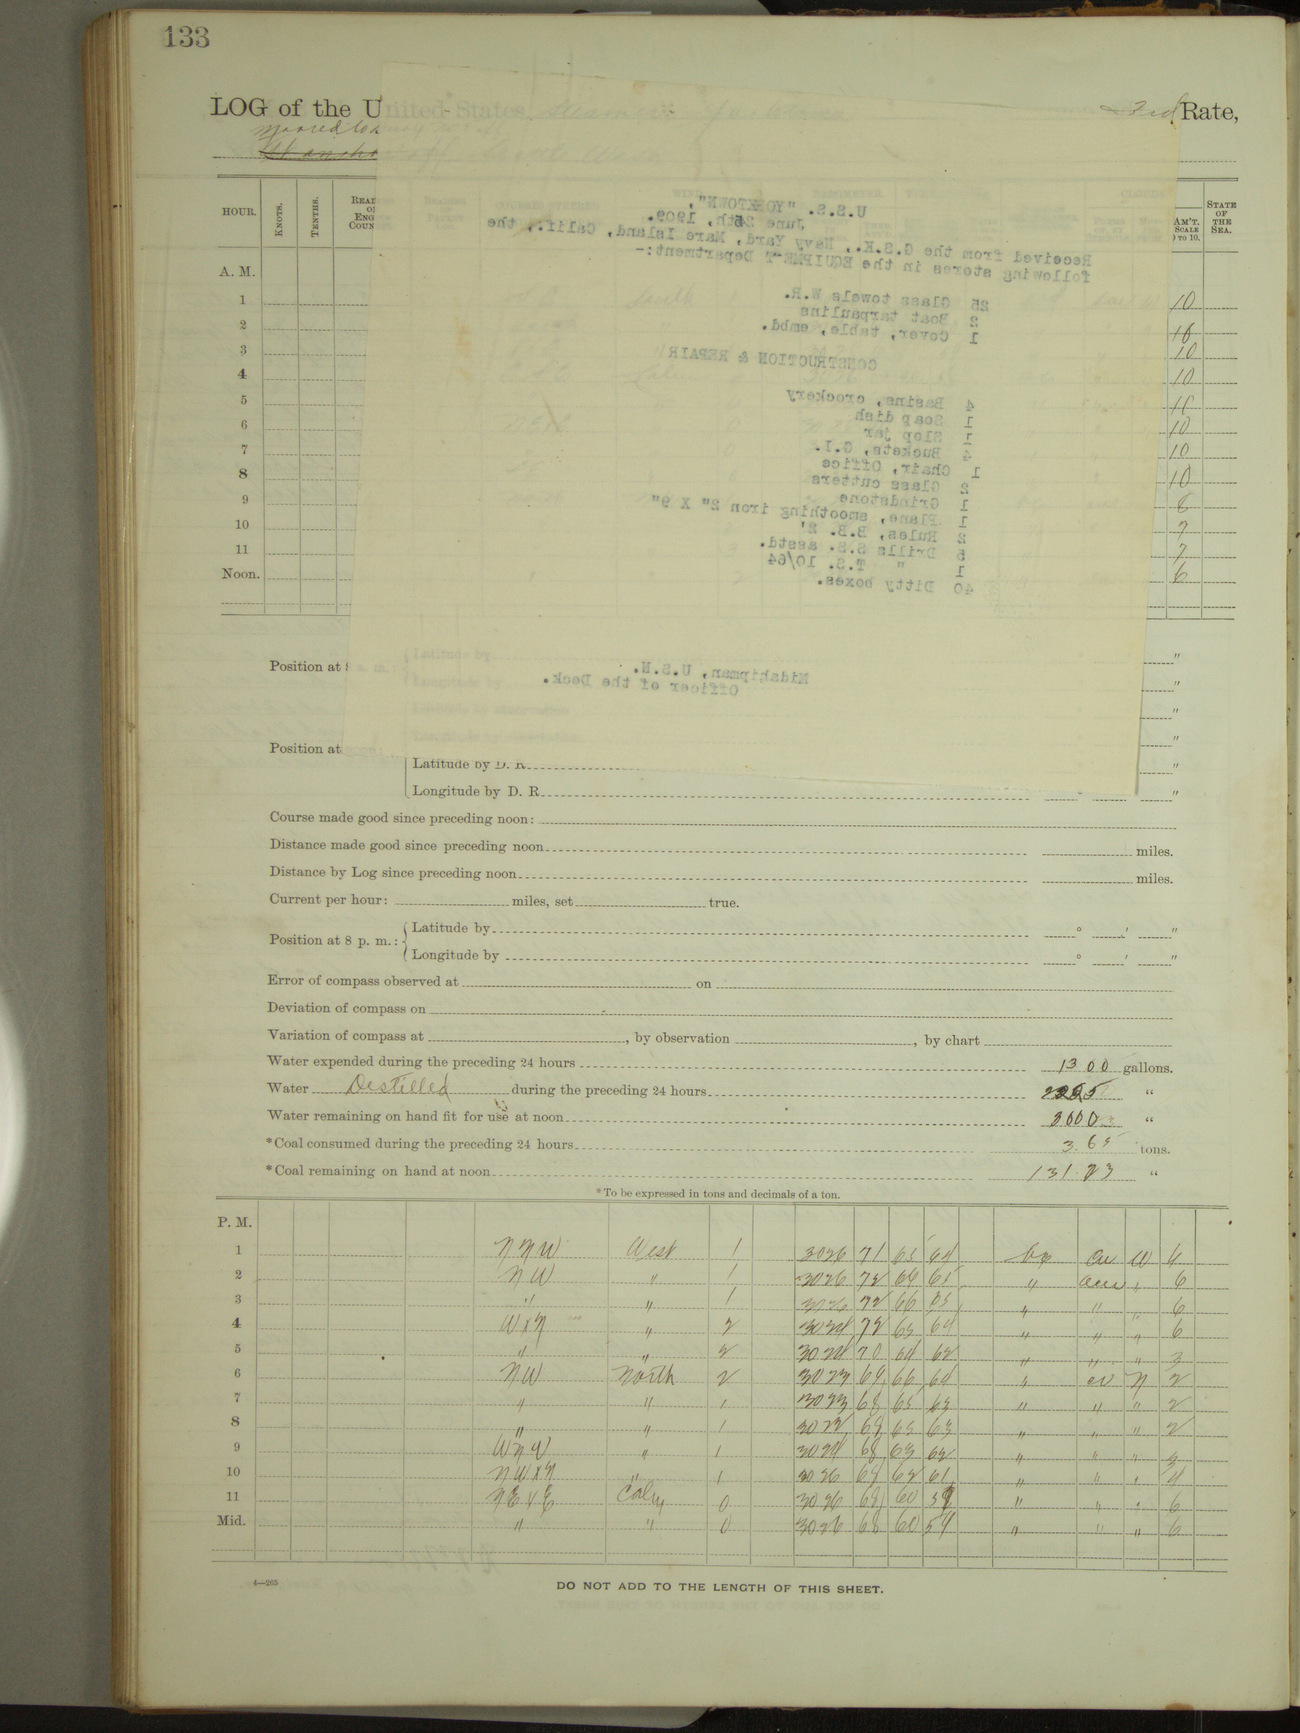 133
LOG of the United States Steamer 3rd Rate,
moored to a
At anchor
HOUR. KNOTS. TENTHS. AM'T. SCALE 0 TO 10. STATE OF THE SEA.
U.S.S. "YORKTOWN",
June 25th, 1909.
Received from the G.S.K., Navy Yard, Mare Island, Calif., the
following stores in the EQUIPMENT Department:-
25 Glass towels W.R.
2 Boat tarpaulins
1 Cover, table, embd.
CONSTRUCTION & REPAIR
4 Basins, crockery
1 Soap dish
1 Slop jar
4 Buckets, G.I.
1 Chair, Office
2 Glass cutters
1 Grindstone
1 Plane, smoothing iron 2" X 9"
2 Rules, B.B. 2'
5 Drills S.S. asstd.
1 " T.S. 10/64
40 Ditty boxes.
Midshipman, U.S.N.
Officer of the Deck.
A. M.
1 10
2 10
3 10
4 10
5 10
6 10
7 10
8 10
9 8
10 7
11 7
Noon. 6
Position at
Position at
Latitude by D. R. "
Longitude by D. R. ° "
Course made good since preceding noon:
Distance made good since preceding noon miles.
Distance by Log since preceding noon miles.
Current per hour: miles, set true.
Position at 8 p. m.: Latitude by ° ' "
Longitude by ° ' "
Error of compass observed at on
Deviation of compass on
Variation of compass at , by observation , by chart
Water expended during the preceding 24 hours 1300 gallons.
Water Distilled during the preceding 24 hours "
Water remaining on hand fit for use at noon 3000 "
*Coal consumed during the preceding 24 hours 3.65 tons.
*Coal remaining on hand at noon 131.23 "
*To be expressed in tons and decimals of a ton.
P. M.
1 NNW West 1 3026 71 65 64 bc cu W 6
2 NW " 1 3026 72 66 65 " " 6
3 " " 1 3026 72 66 65 " " " 6
4 WxN " 2 3024 72 65 64 " " " 6
5 " " 2 3024 70 64 62 " " " 3
6 NW North 2 3023 69 66 64 " N 2
7 " " 1 3023 68 65 63 " " " 2
8 " " 1 3023 68 65 63 " " " 2
9 WNW " 1 3024 68 63 62 " " "
10 NWxN " 1 3026 68 62 61 " " " 4
11 NExE Calm 0 3026 68 60 59 " " " 6
Mid. " " 0 3026 68 60 59 " " " 6
4—265
DO NOT ADD TO THE LENGTH OF THIS SHEET.